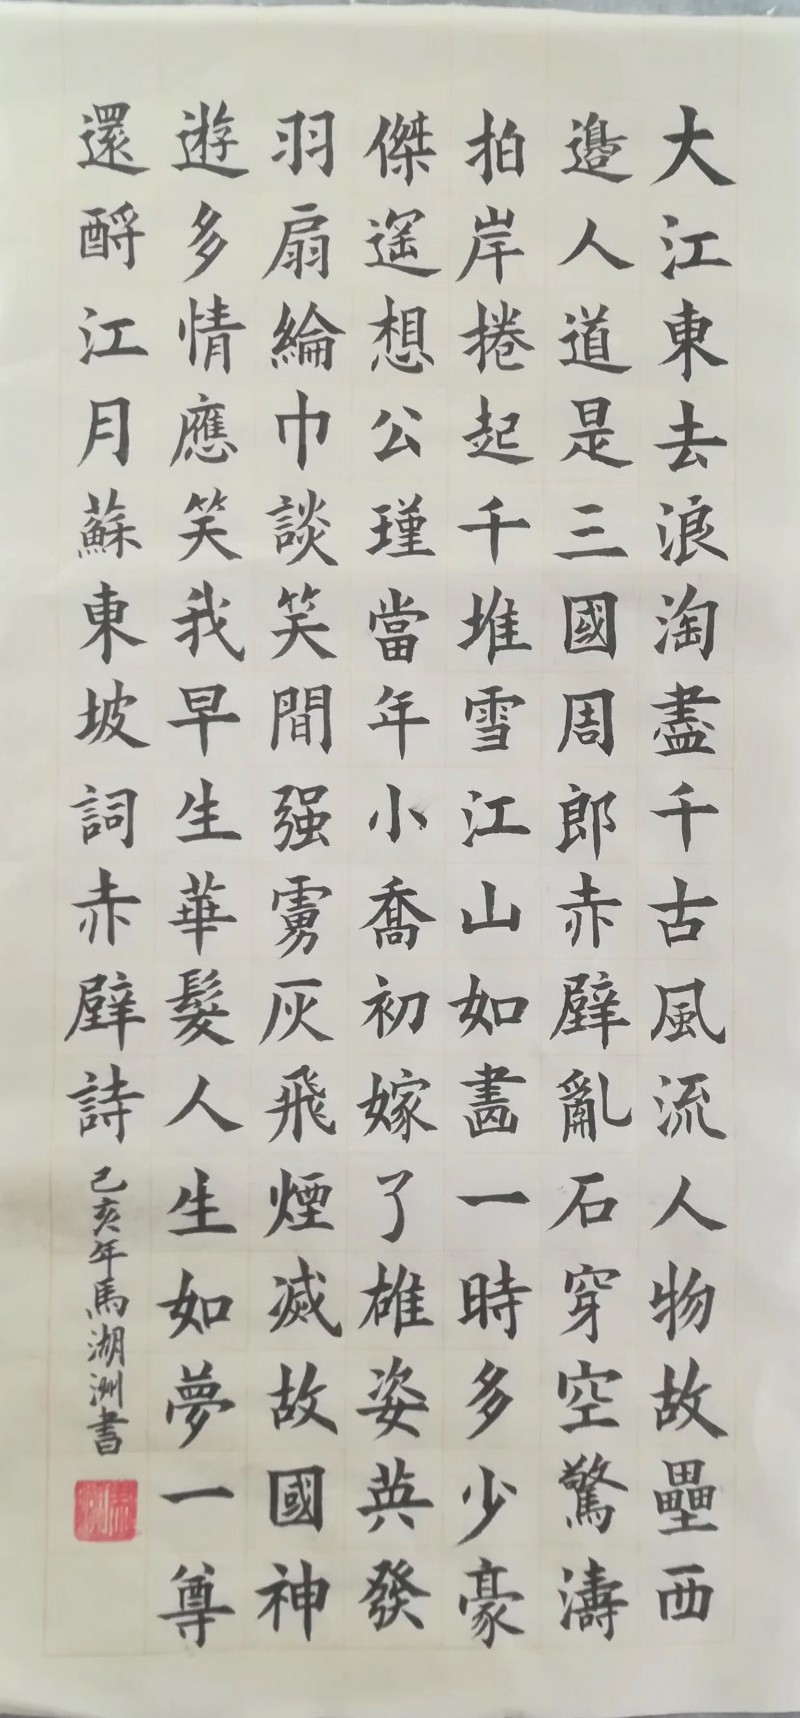 大江東去浪淘盡千古風流人物故壘西
邊人道是三國周郎赤壁亂石穿空驚濤
拍岸捲起千堆雪江山如畫一時多少豪
傑遥想公瑾當年小喬初嫁了雄姿英發
羽扇綸巾談笑間强虜灰飛煙滅故國神
遊多情應笑我早生華髮人生如夢一尊
還酹江月蘇東坡詞赤壁詩
己亥年馬湖洲書